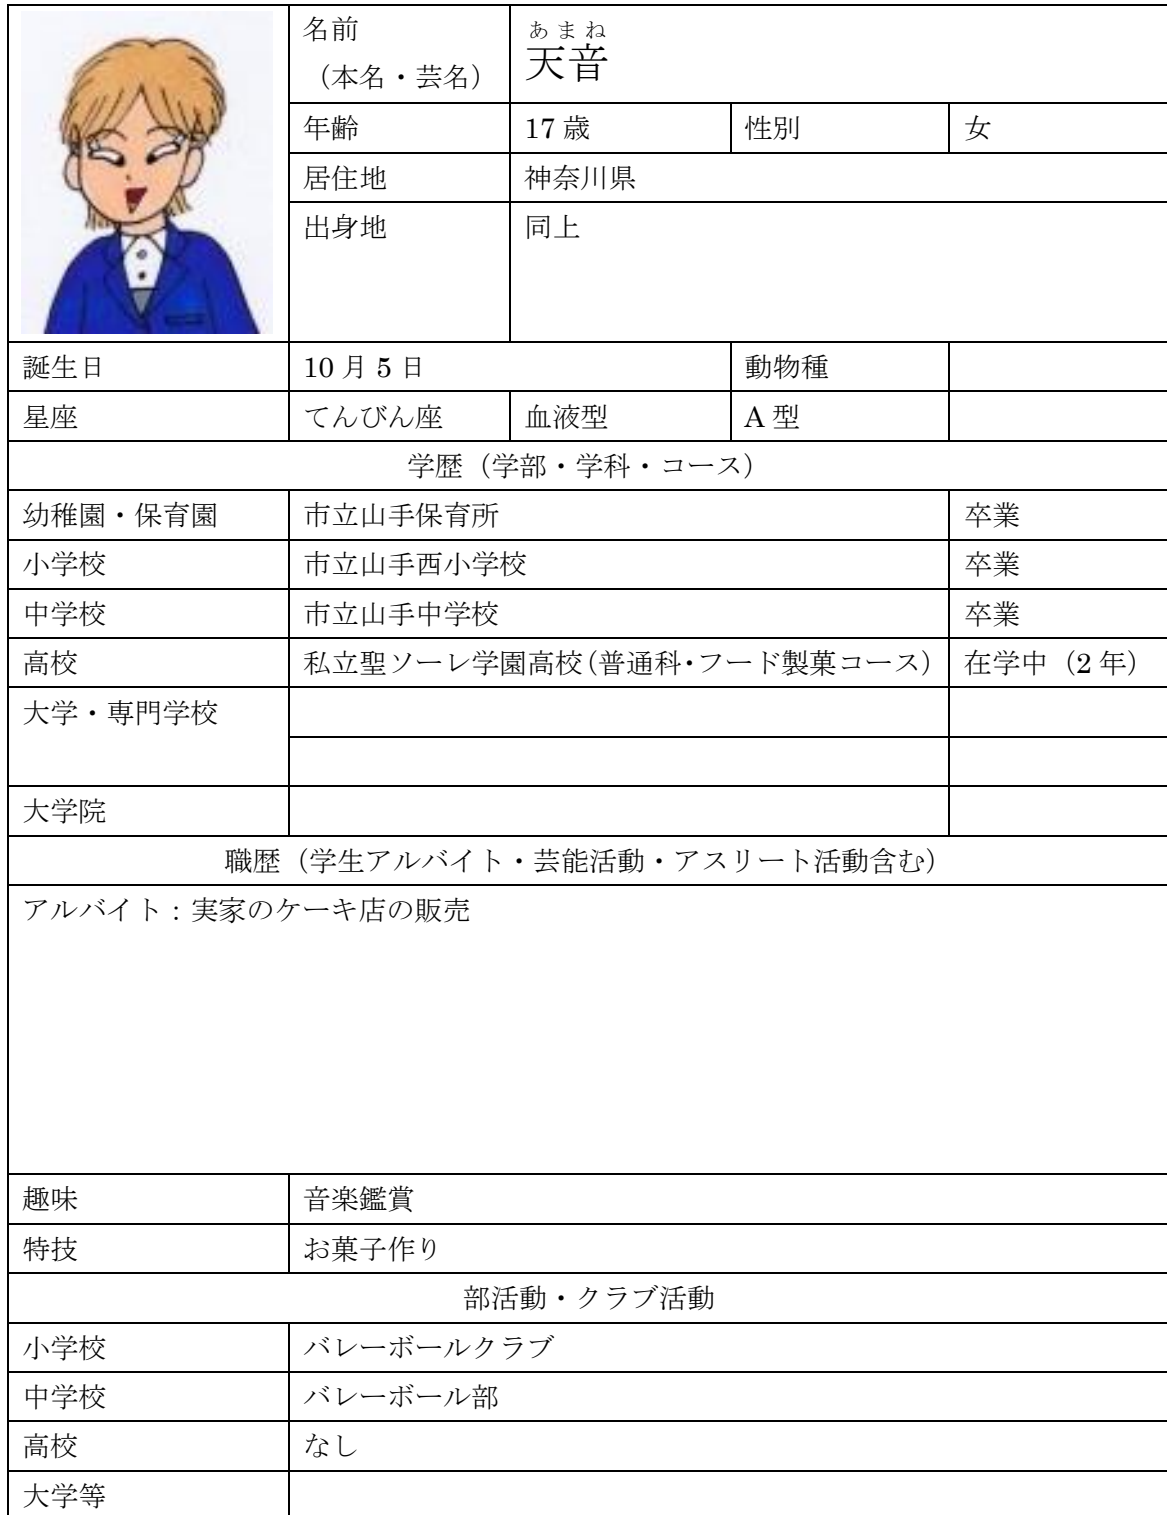 名前
（本名・芸名）
あまね
天音
年齢 17 歳 性別 女
居住地 神奈川県
出身地 同上
誕生日 10 月 5 日 動物種
星座 てんびん座 血液型 A 型
学歴（学部・学科・コース）
幼稚園・保育園 市立山手保育所 卒業
小学校 市立山手西小学校 卒業
中学校 市立山手中学校 卒業
高校 私立聖ソーレ学園高校（普通科・フード製菓コース） 在学中（2 年）
大学・専門学校
大学院
職歴（学生アルバイト・芸能活動・アスリート活動含む）
アルバイト：実家のケーキ店の販売
趣味 音楽鑑賞
特技 お菓子作り
部活動・クラブ活動
小学校 バレーボールクラブ
中学校 バレーボール部
高校 なし
大学等